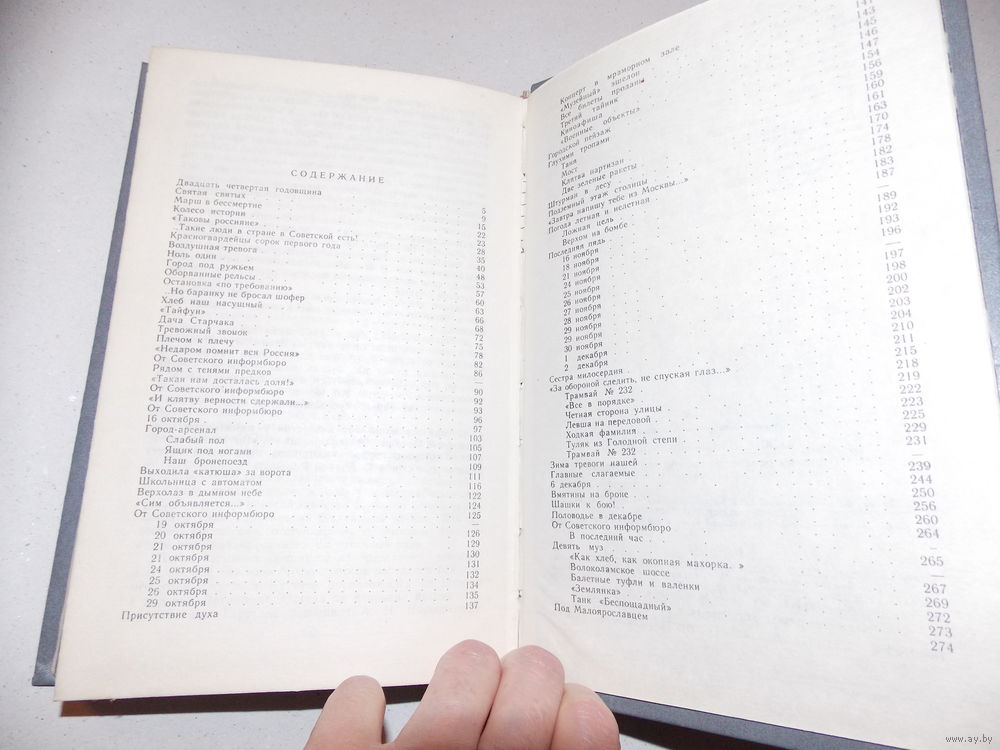 СОДЕРЖАНИЕ
Двадцать четвертая годовщина 5
Святая святых 9
Марш в бессмертие 15
Колесо истории 22
«Таковы россияне» 23
...Такие люди в стране в Советской есть! 28
Красногвардейцы сорок первого года 35
Воздушная тревога 40
Ноль один 48
Город под ружьем 53
Оборванные рельсы 57
Остановка «по требованию» 60
...Но баранку не бросал шофер 63
Хлеб наш насущный 66
«Тайфун» 68
Дача Старчака 72
Тревожный звонок 75
Плечом к плечу 78
«Недаром помнит вся Россия» 82
От Советского информбюро 86
Рядом с тенями предков —
«Такая нам досталась доля!» 90
От Советского информбюро 92
«И клятву верности сдержали...» 93
От Советского информбюро 96
16 октября 97
Город-арсенал 103
Слабый пол 105
Ящик под ногами 107
Наш бронепоезд 109
Выходила «катюша» за ворота 111
Школьница с автоматом 116
Верхолаз в дымном небе 122
«Сим объявляется...» 124
От Советского информбюро 125
19 октября —
20 октября 126
21 октября 129
21 октября 130
24 октября 131
25 октября 132
26 октября 134
29 октября 135
Присутствие духа 137
Концерт в мраморном зале
«Музейный» эшелон
Все билеты проданы 141
Третий тайник 143
Киноафиша 145
«Военные объекты» 146
Городской пейзаж 147
Глухими тропами 154
Таня 156
Мост 159
Клятва партизан 160
Две зеленые ракеты 161
Штурман в лесу 163
Подземный этаж столицы 170
«Завтра напишу тебе из Москвы...» 174
Погода летная и нелетная 178
Ложная цель 182
Верхом на бомбе 183
Последняя пядь 187
16 ноября —
18 ноября 189
21 ноября 192
24 ноября 193
25 ноября 196
26 ноября —
27 ноября 197
28 ноября 198
29 ноября 200
29 ноября 202
30 ноября 203
1 декабря 204
2 декабря 210
Сестра милосердия 211
«За обороной следить, не спуская глаз...» 215
Трамвай № 232 218
«Все в порядке» 219
Четная сторона улицы 222
Левша на передовой 223
Ходкая фамилия 225
Туляк из Голодной степи 229
Трамвай № 232 231
Зима тревоги нашей —
Главные слагаемые 239
6 декабря 244
Вмятины на броне 250
Шашки к бою! 256
Половодье в декабре 260
От Советского информбюро 264
В последний час —
Девять муз 265
«Как хлеб, как окопная махорка...» —
Волоколамское шоссе 267
Балетные туфли и валенки 269
«Землянка» 272
Танк «Беспощадный» 273
Под Малоярославцем 274
www.ay.by